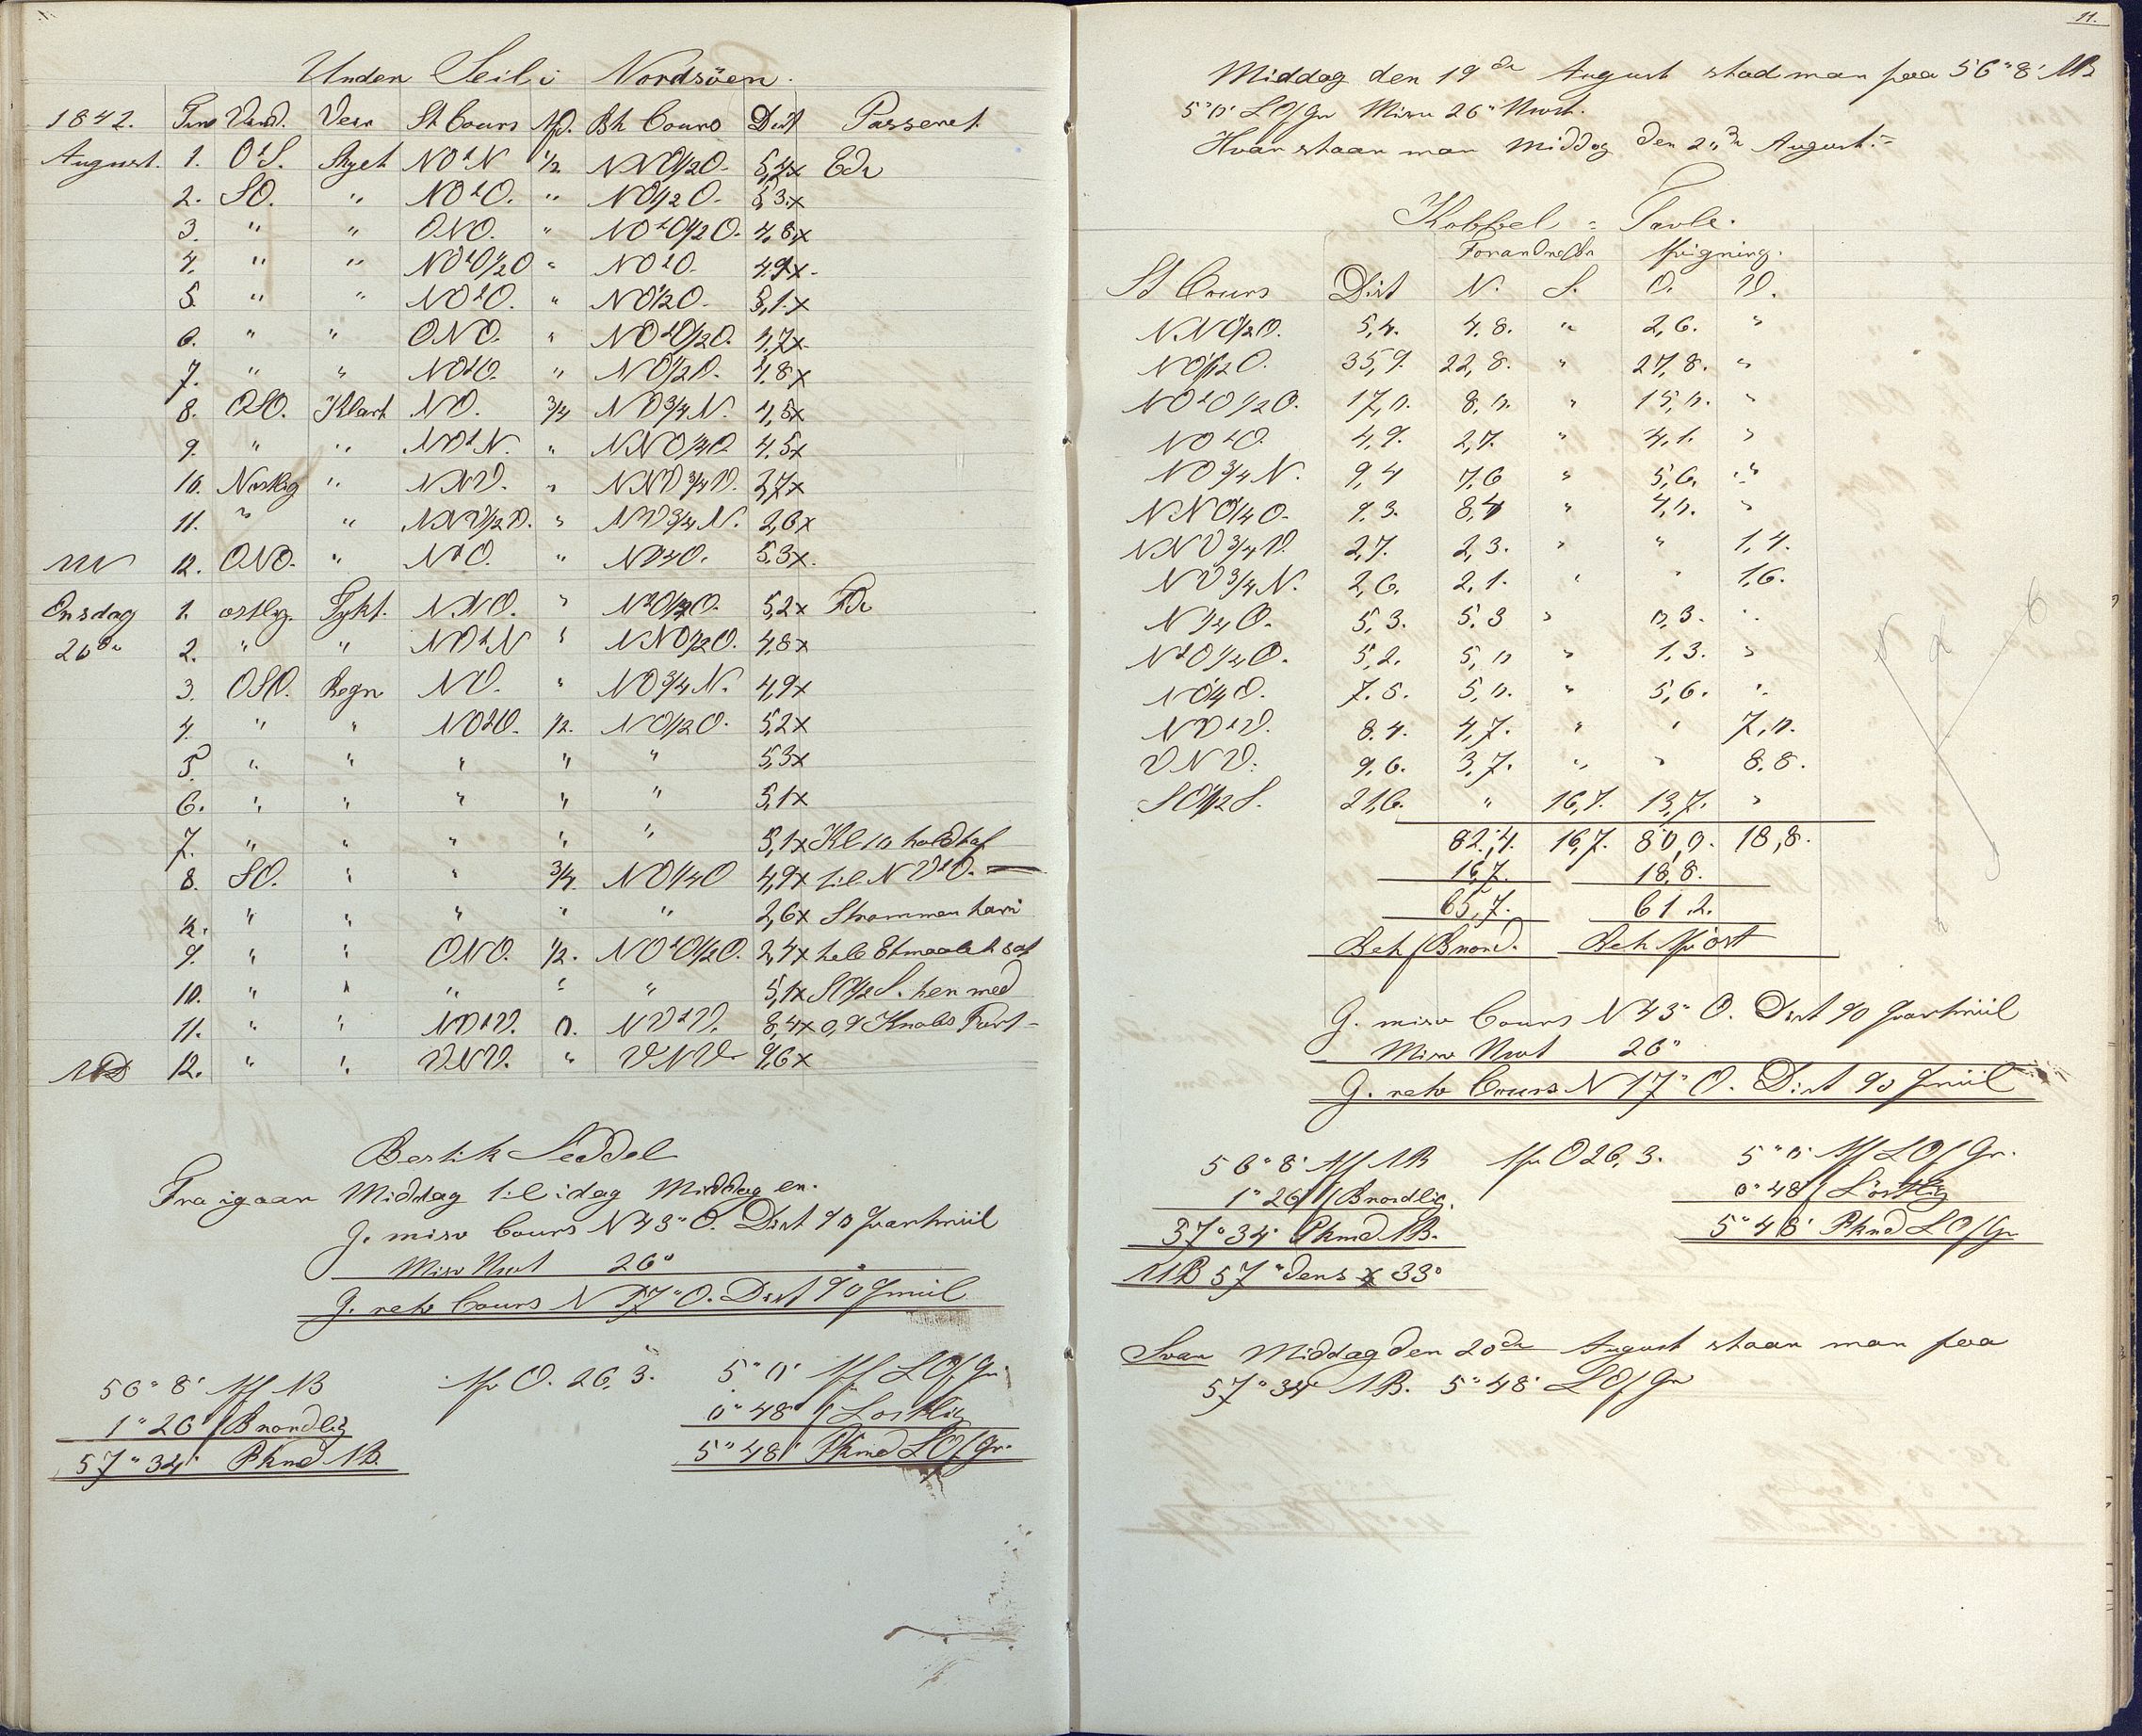 Under Seil i Nordsöen.
1842. Time Vind. Veir St Cours Afd. Bh Cours Dist Passeret.
August. 1. OtS. Skyet NOtN 1/2 NNO1/2O. 5,4x Edr
2. SO. " NOtO. " NO1/2O. 5,3x
3. " " ONO. " NOtO1/2O. 4,8x
4. " " NOtO1/2O " NOtO. 4,9x
5. " " NOtO. " NO1/2O. 5,1x
6. " " ONO. " NOtO1/2O. 4,7x
7. " " NOtO. " NO1/2O. 4,8x
8. OSO. Klart NO. 3/4 NO3/4N. 4,5x
9. " " NOtN. " NNO1/4O 4,5x
10. Nordlig " NNV. " NNV3/4V. 2,7x
11. " " NNV1/2V. " NV3/4N. 2,6x
MN 12. ONO. " NtO. " N1/4O. 5,3x
Onsdag 1. ostlig. Tykt. NNO. " NtO1/4O. 5,2x Fdr
20de 2. " " NOtN " NNO1/4O. 4,8x
3. OSO. Regn NO. " NO3/4N. 4,9x
4. " " NOtO. 1/2. NO1/2O. 5,2x
5. " " " " " 5,3x
6. " " " " " 5,1x
7. " " " " " 5,1x Kl 10 holdt af
8. SO. " " 3/4. NO1/4O 4,9x til NVtV.
1/2. " " " " " 2,6x Strommen hari
9. " " ONO. 1/2. NOtO1/2O. 2,4x hele Etmaalet sat
10. " " " " " 5,1x SO1/2S. hen med
11. " " NVtV. 0. NVtV. 8,4x 0,9 Knobs Fart
MD 12. " " VNV. " VNV 9,6x
Bestik Seddel
Fra igaar Middag til idag Middag er.
G. misv Cours N 43° O. Dist 90 Kvartmiil
Misv Nvst 26°
G. retv Cours N 17° O. Dist 90 Qmiil
56° 8' Aff NB Afv O. 26,3. 5° 0' Aff LOf Gr.
1° 26' fBnordlig 0° 48' fLostlig
57° 34' Pkmd NB. 5° 48' Pkmd LOf Gr.
11.
Middag den 19de August stod man paa 56° 8' NB
5° 0' LOf Gr Misv 26° Nvst.
Hvor staar man Middag den 20de August?
Kobbel = Tavle.
Forandret Br Afvigning.
St Cours Dist N. S. O. V.
NNO1/2O. 5,4. 4,8. " 2,6. "
NO1/2O. 35,9. 22,8. " 27,8. "
NOtO1/2O. 17,0. 8,0. " 15,0. "
NOtO 4,9. 2,7. " 4,1. "
NO3/4N. 9,4 7,6 " 5,6. "
NNO1/4O. 9,3. 8,4 " 4,0. "
NNV3/4V. 2,7. 2,3. " " 1,4.
NV3/4N. 2,6. 2,1. " " 1,6.
N1/4O. 5,3. 5,3 " 0,3. "
NtO1/4O. 5,2. 5,0 " 1,3. "
NO1/4O. 7,5. 5,0. " 5,6. "
NVtV. 8,4. 4,7. " " 7,0.
VNV. 9,6. 3,7. " " 8,8.
SO1/2S. 21,6. " 16,7. 13,7. "
82,4. 16,7. 80,0. 18,8.
16,7. 18,8.
65,7. 61,2.
Beh fBnord. Beh Afv ost
G. misv Cours N 43° O. Dist 90 Kvartmiil
Misv Nvst 26°
G. retv Cours N 17° O. Dist 90 Qmiil
56° 8' Aff NB Afv O 26,3. 5° 0' Aff LOf Gr.
1° 26' fBnordlig. 0° 48' fLostlig
57° 34' Pkmd NB. 5° 48' Pkmd LOf Gr
MB 57° dens x 33°
Svar Middag den 20de August staar man paa
57° 34' NB. 5° 48' LOf Gr